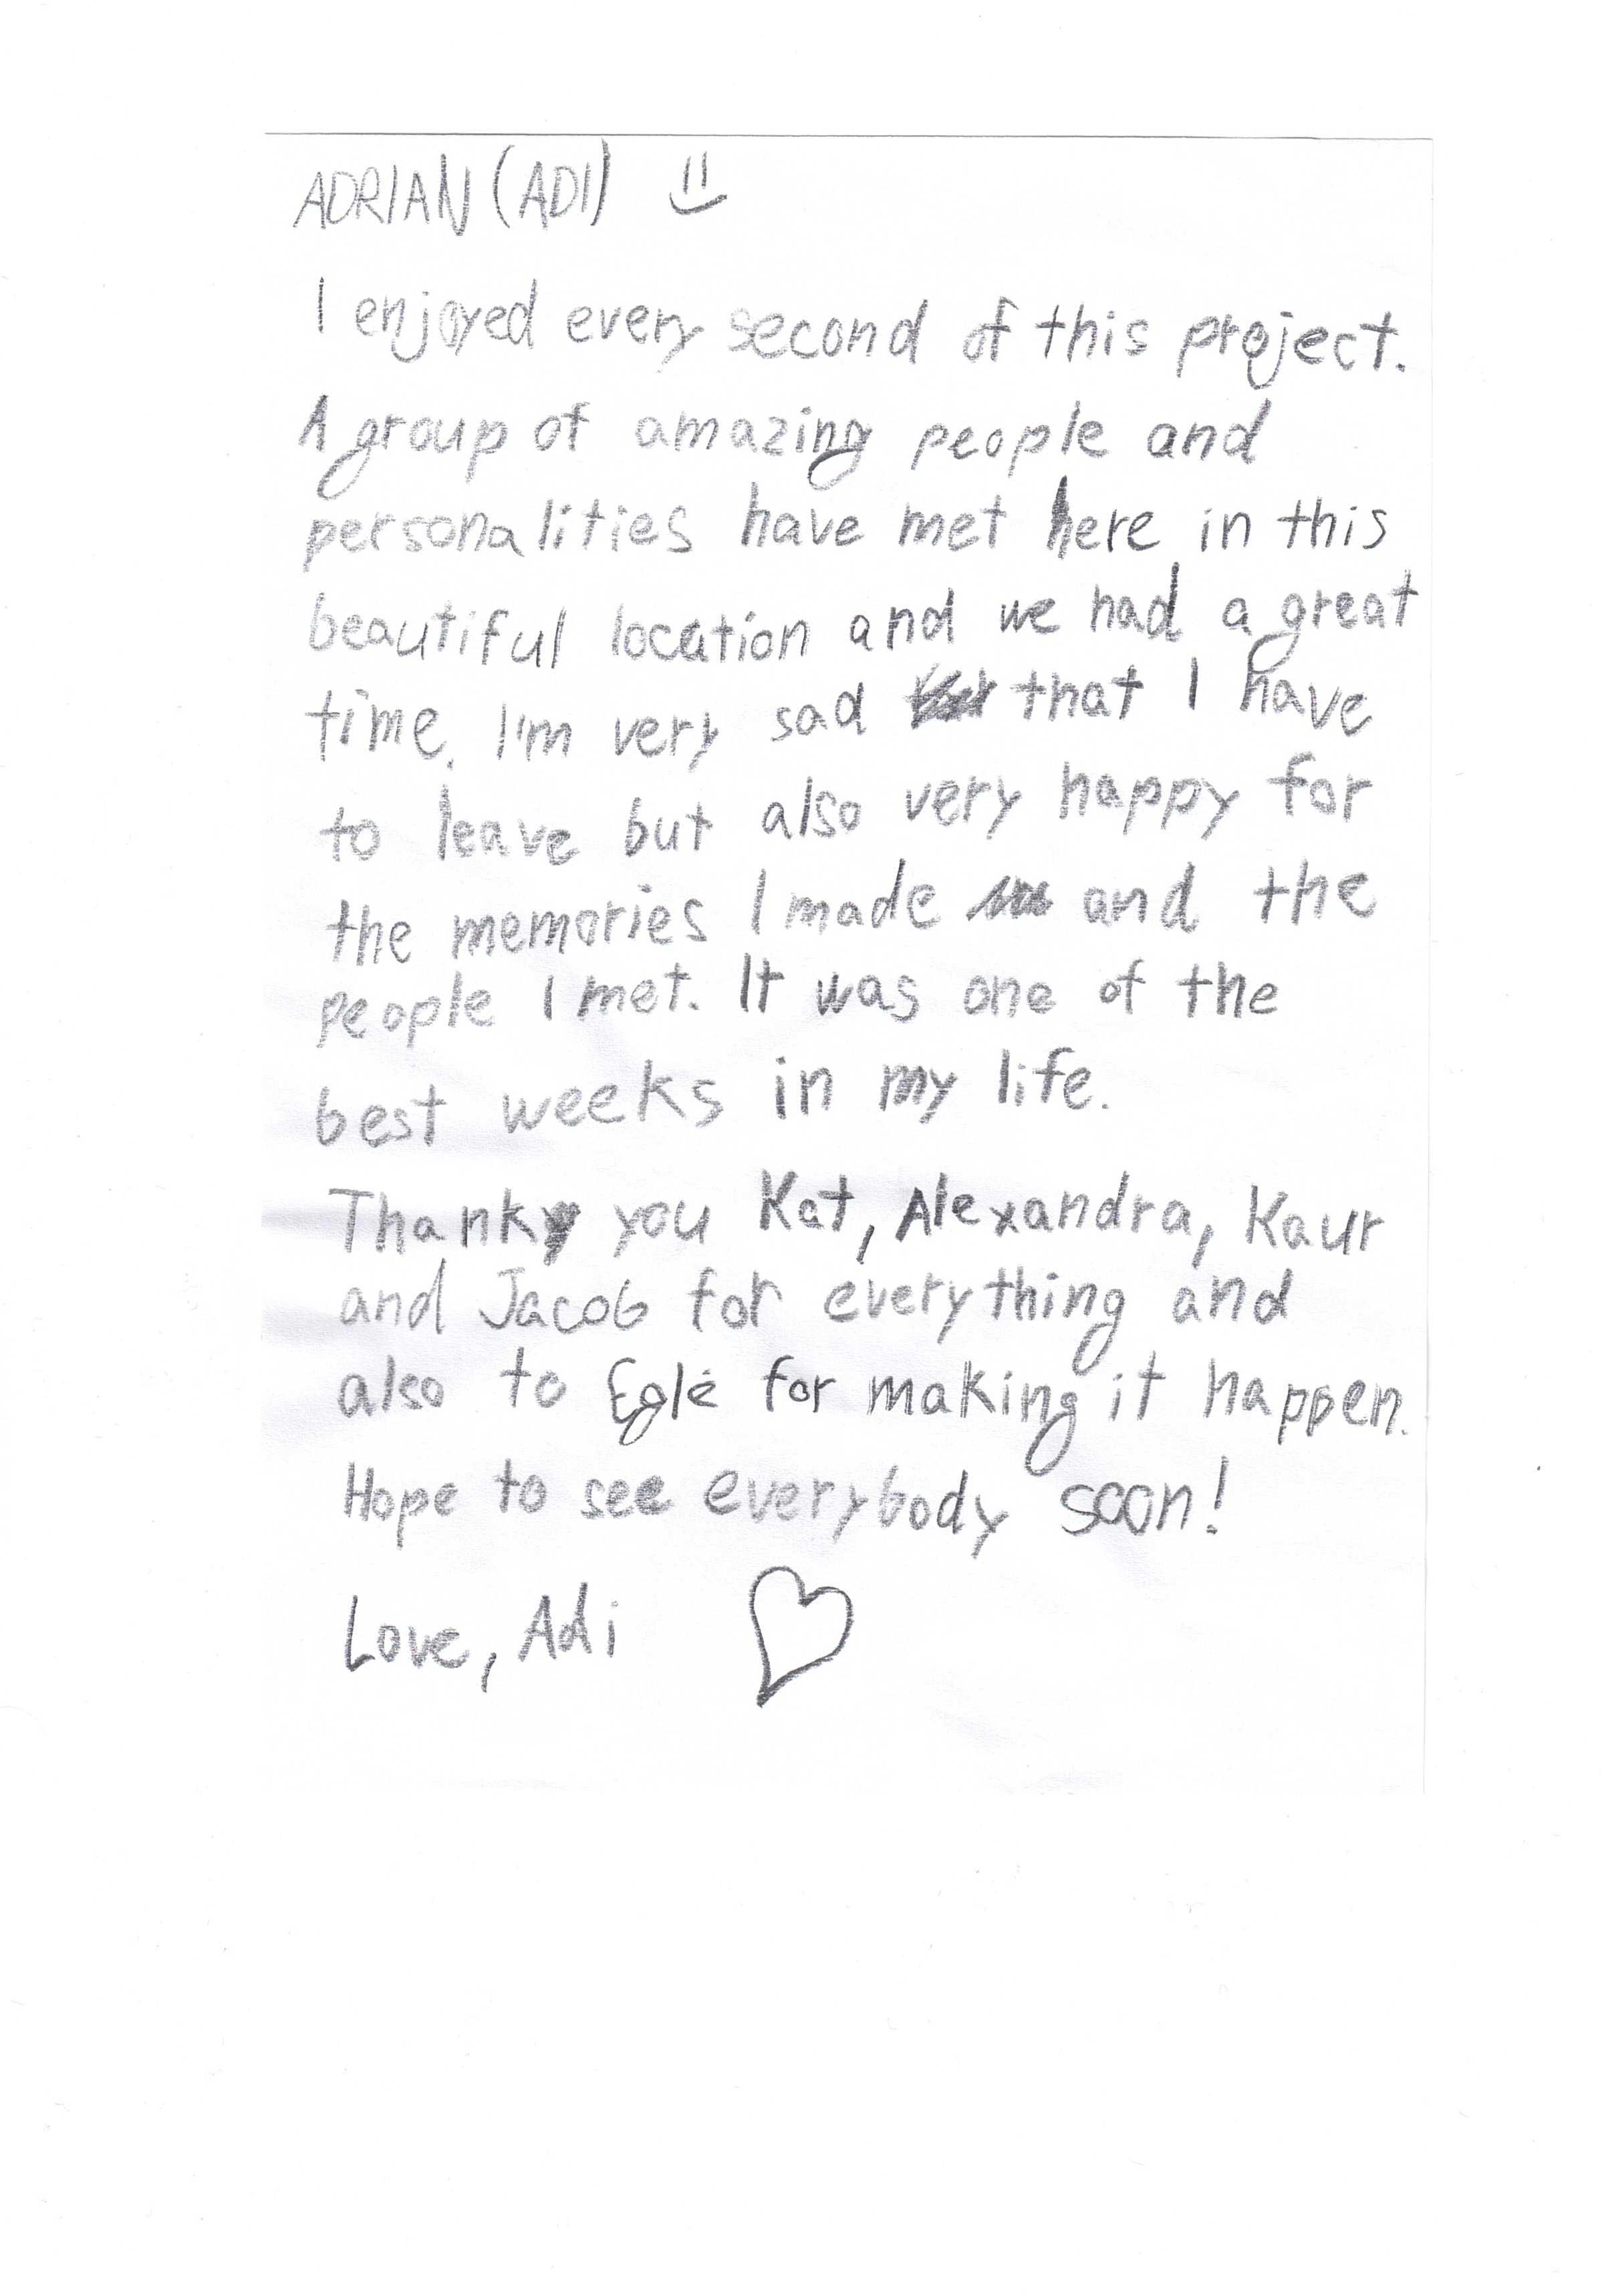 ADRIAN (ADI)
I enjoyed every second of this project.
A group of amazing people and
personalities have met here in this
beautiful location and we had a great
time. I'm very sad that I have
to leave but also very happy for
the memories I made and the
people I met. It was one of the
best weeks in my life.
Thank you Kat, Alexandra, Kaur
and Jacob for everything and
also to Eglė for making it happen.
Hope to see everybody soon!
Love, Adi